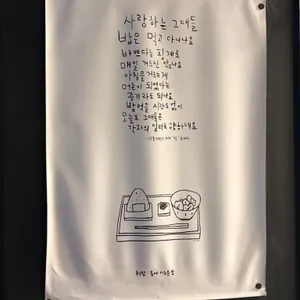 사랑하는 그대들
밥은 먹고 다니나요
바쁘다는 핑계로
매일 거르진 않나요
아침을 거르는게
어른이 되었다는
증거라도 되나요
밥 먹을 시간도 없이
오늘도 그대들은
각자의 일터로 향하겠지요